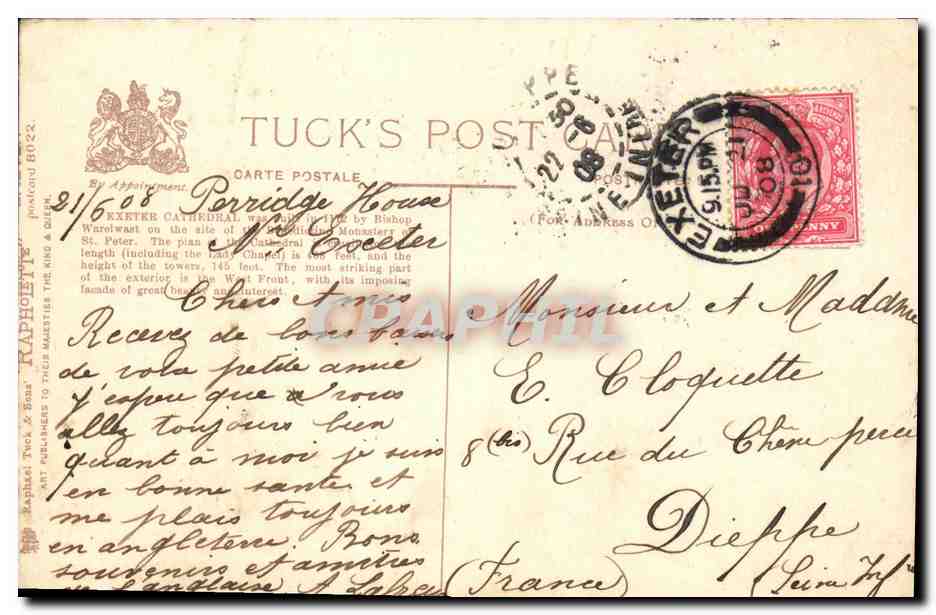 TUCK'S POST CA
CARTE POSTALE
By Appointment.
(FOR ADDRESS O
EXETER CATHEDRAL was built in 1112 by Bishop
Warelwast on the site of the Benedictine Monastery of
St. Peter. The plan of the Cathedral is
length (including the Lady Chapel) is 408 feet, and the
height of the towers, 145 feet. The most striking part
of the exterior is the West Front, with its imposing
facade of great beauty and interest.
Raphael Tuck & Sons' "RAPHOLETTE" postcard 8022.
ART PUBLISHERS TO THEIR MAJESTIES THE KING & QUEEN.
21/6 08 Perridge House
Nr Exeter
Chers Amis
Recevez de bons baisers
de votre petite amie
j'espere que vous
allez toujours bien
quant à moi je suis
en bonne sante et
me plais toujours
en angleterre. Bons
souvenirs et amitiés
l'anglaise A
Monsieur et Madame
E. Cloquette
8 (bis) Rue du Chêne percé
Dieppe
(France) (Seine Infre
EXETER
9.15 PM
JU 21
08
101
ONE PENNY
22
6
08
CPAPHIL